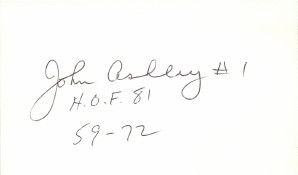 John Ashley #1
H.O.F. 81
59-72